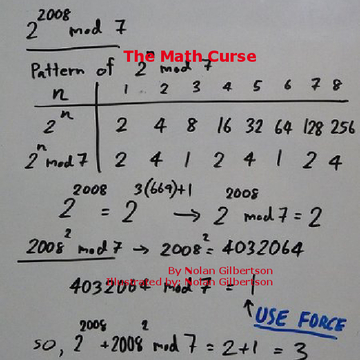 2^2008 mod 7
The Math Curse
Pattern of 2^n mod 7
n 1 2 3 4 5 6 7 8
2^n 2 4 8 16 32 64 128 256
2^n mod 7 2 4 1 2 4 1 2 4
2^2008 = 2^3(669)+1 → 2^2008 mod 7 = 2
2008^2 mod 7 → 2008^2 = 4032064
By Nolan Gilbertson
Illustrated by: Nolan Gilbertson
4032064 mod 7 = 1
USE FORCE
so, 2^2008 + 2008^2 mod 7 = 2+1 = 3